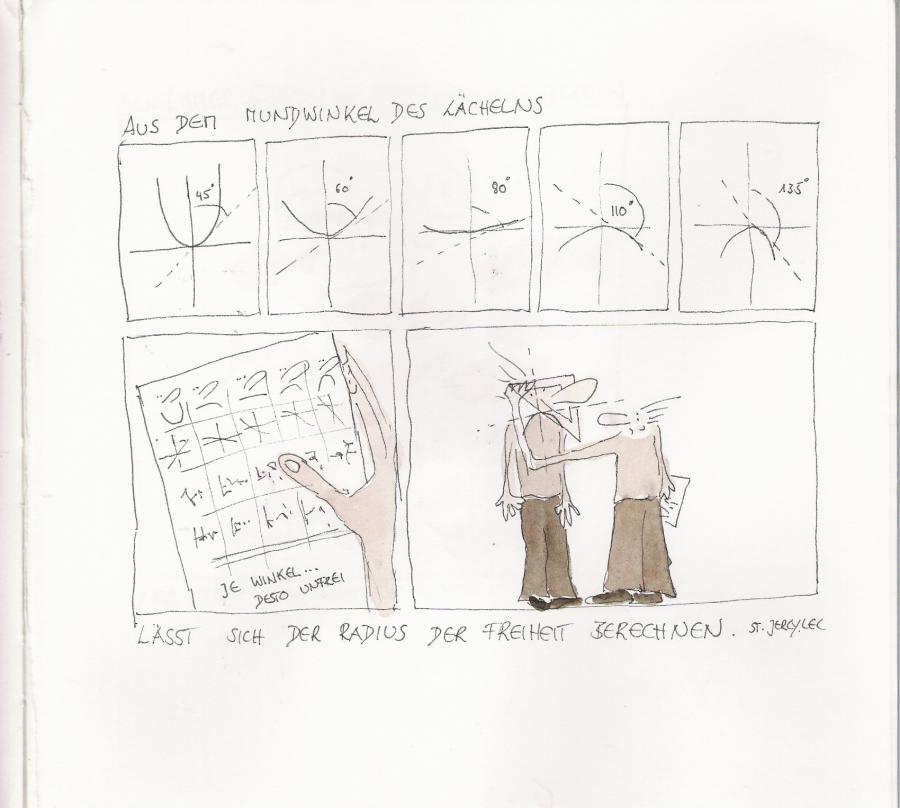 AUS DEM MUNDWINKEL DES LÄCHELNS
45°
60°
80°
110°
135°
JE WINKEL...
DESTO UNFREI
LÄSST SICH DER RADIUS DER FREIHEIT BERECHNEN. ST. JERCY. LEC